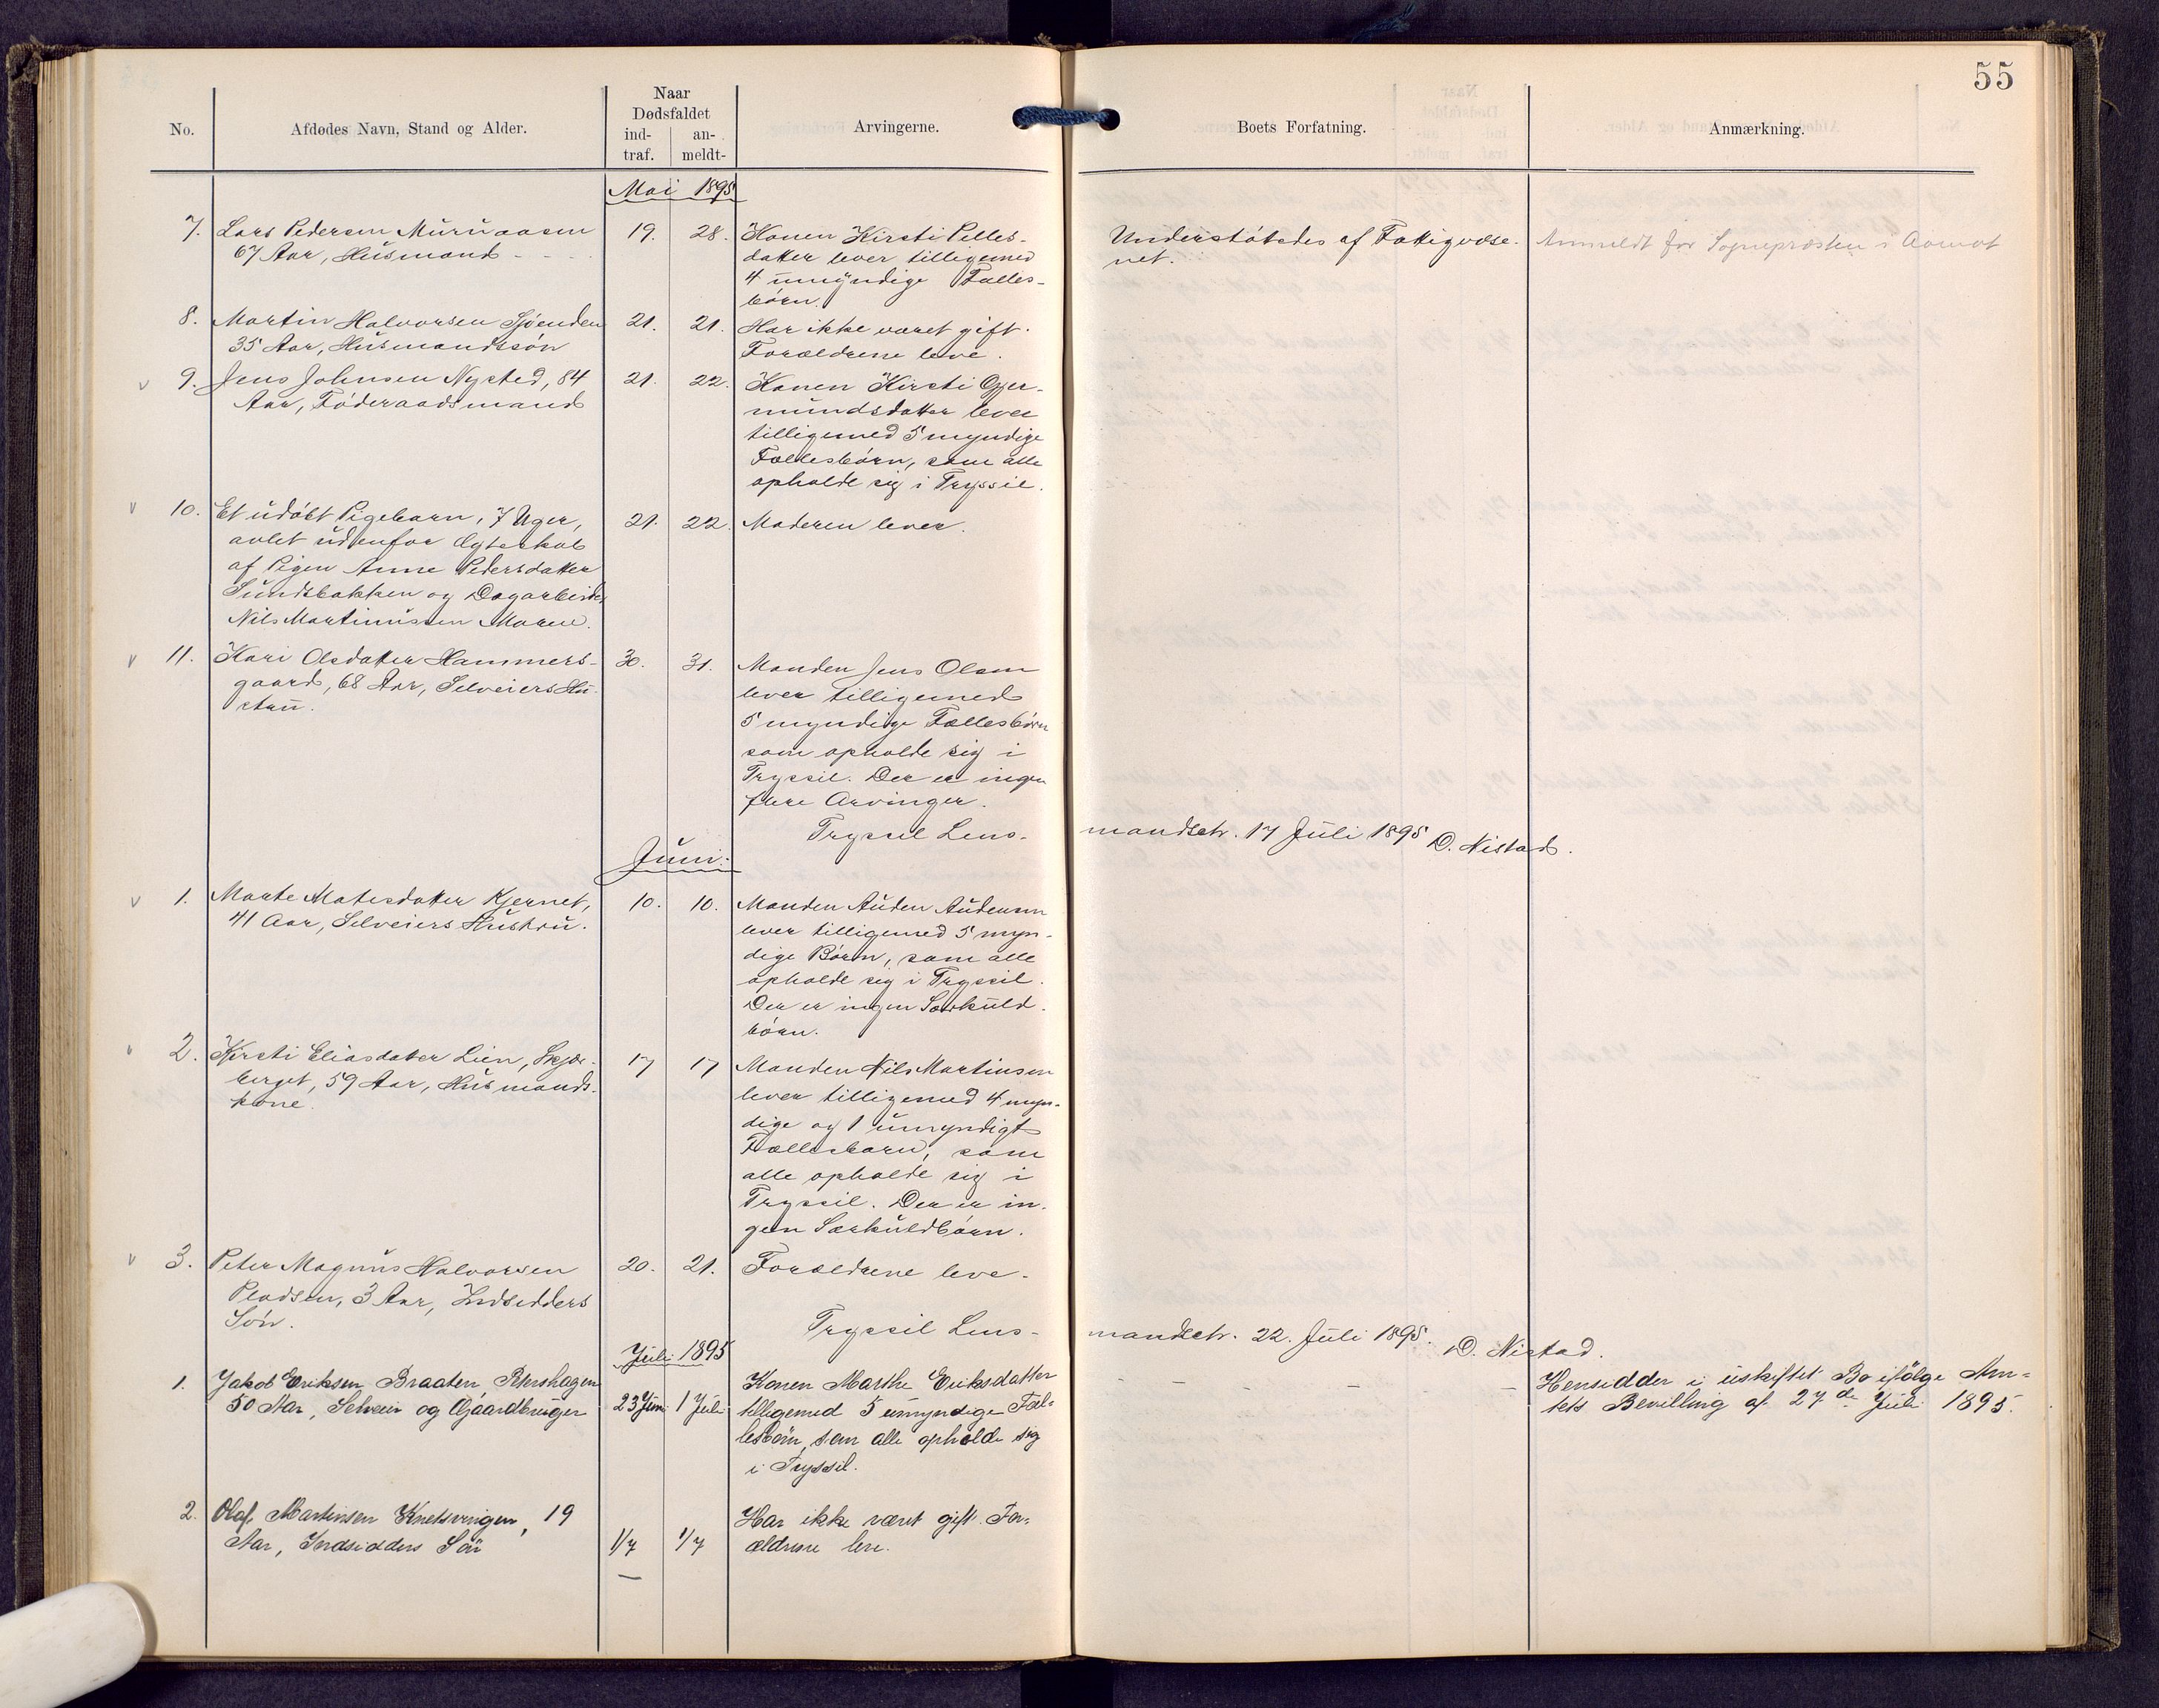 55
No.
Afdødes Navn, Stand og Alder.
Naar
Dødsfaldet
ind-
traf.
an-
meldt-
Arvingerne.
Boets Forfatning.
Anmærkning.
Mai 1895
7. Lars Pedersen Muruaasen
67 Aar, Husmand
19. 28.
Konen Kirsti Pelles-
datter lever tilligemed
4 umyndige Fælles-
børn.
Understøtedes af Fattigvæse-
net.
Anmeldt for Sognepræsten i Aamot
8. Martin Halvorsen Sjøenden
35 Aar, Husmandssøn
21. 21.
Har ikke været gift.
Forældrene leve.
9. Jens Johnsen Nysted, 84
Aar, Føderaadsmand
21. 22.
Konen Kirsti
mundsdatter lever
tilligemed 5 myndige
Fællesbørn, som alle
opholde sig i Tryssil.
10. Et udøbt Pigebarn, 7 Uger,
avlet udenfor Ægteskab
af Pigen Anne Pedersdatter
Sundsbakken og Dagarbeider
Nils Martinussen Moren.
21. 22.
Moderen lever.
11. Kari Olsdatter Hammers-
gaard, 68 Aar, Selveiers Hu-
stru.
30. 31.
Manden Jens Olsen
lever tilligemed
5 myndige Fællesbørn
som opholde sig i
Tryssil. Der er ingen
flere Arvinger.
Tryssil Lens-
mandsetr. 17 Juli 1895 O. Nistad.
Juni:
1. Marte Matesdatter Kjernet,
41 Aar, Selveiers Hustru.
10. 10.
Manden Auden Audensen
lever tilligemed 5 myn-
dige Børn, som alle
opholde sig i Tryssil.
Der er ingen Særkuld-
børn.
2. Kirsti Eliasdatter Lien, Skjær-
berget, 59 Aar, Husmands-
kone.
17 17
Manden Nils Martinsen
lever tilligemed 4 myn-
dige og 1 umyndigt
Fællesbarn, som
alle opholde sig i
Tryssil. Der er in-
gen Særkuldbørn.
3. Peter Magnus Halvorsen
Pladsen, 3 Aar, Indsidders
Søn.
20. 21.
Forældrene leve.
Tryssil Lens-
mandsetr. 22. Juli 1895. O. Nistad.
Juli 1895
1. Jakob Eriksen Braaten,
50 Aar, Selveier og Gaardbruger
23 Juni 1 Juli
Konen Marthe Eriksdatter
tilligemed 5 umyndige Fæl-
lesbørn, som alle opholde sig
i Tryssil.
Hensidder i uskiftet Bo ifølge Am-
tets Bevilling af 27de Juli 1895.
2. Olaf Martinsen Knetsvingen, 19
Aar, Indsidders Søn
1/7 1/7
Har ikke været gift. For-
ældrene leve.